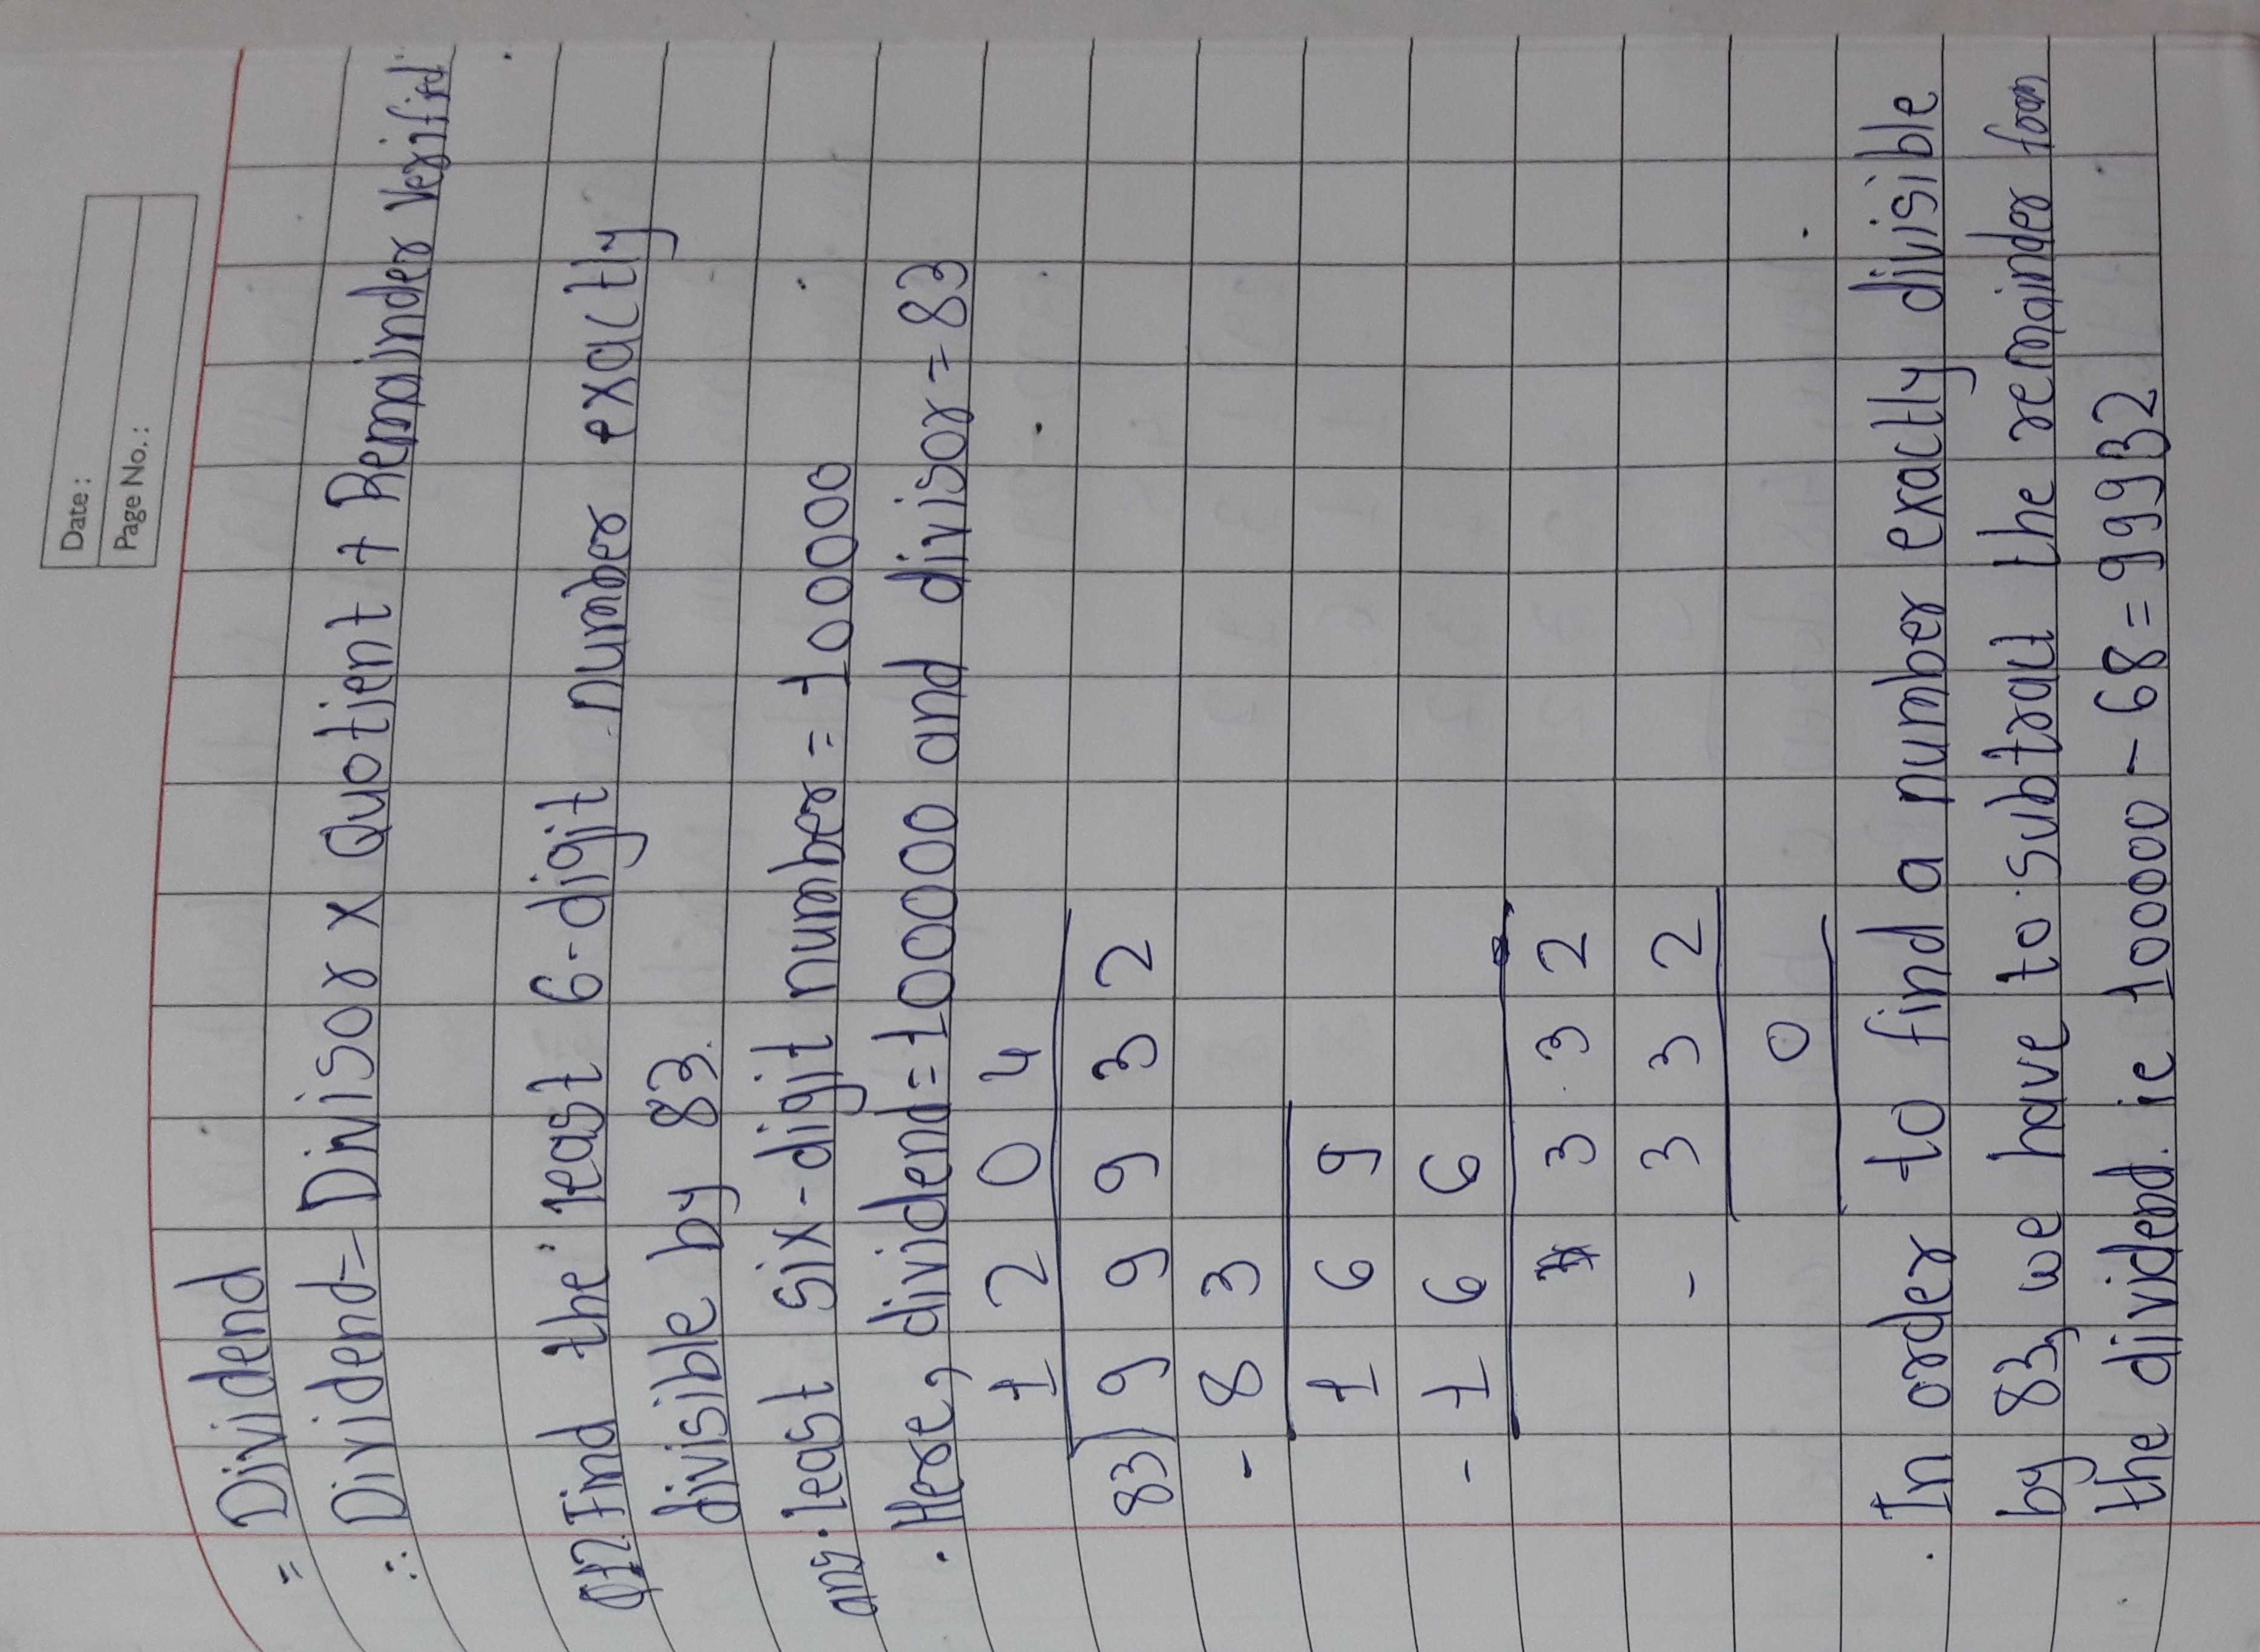 Date :
Page No. :
= Dividend
∴ Dividend = Divisor x Quotient + Remainder Verifid
Q12 Find the least 6-digit number exactly
divisible by 83.
ans. least six-digit number = 100000
. Here, dividend = 100000 and divisor = 83
1 2 0 4
83) 9 9 9 3 2
- 8 3
1 6 9
- 1 6 6
3 3 2
- 3 3 2
0
. In order to find a number exactly divisible
by 83, we have to subtract the remainder from
the dividend. ie 100000 - 68 = 99932